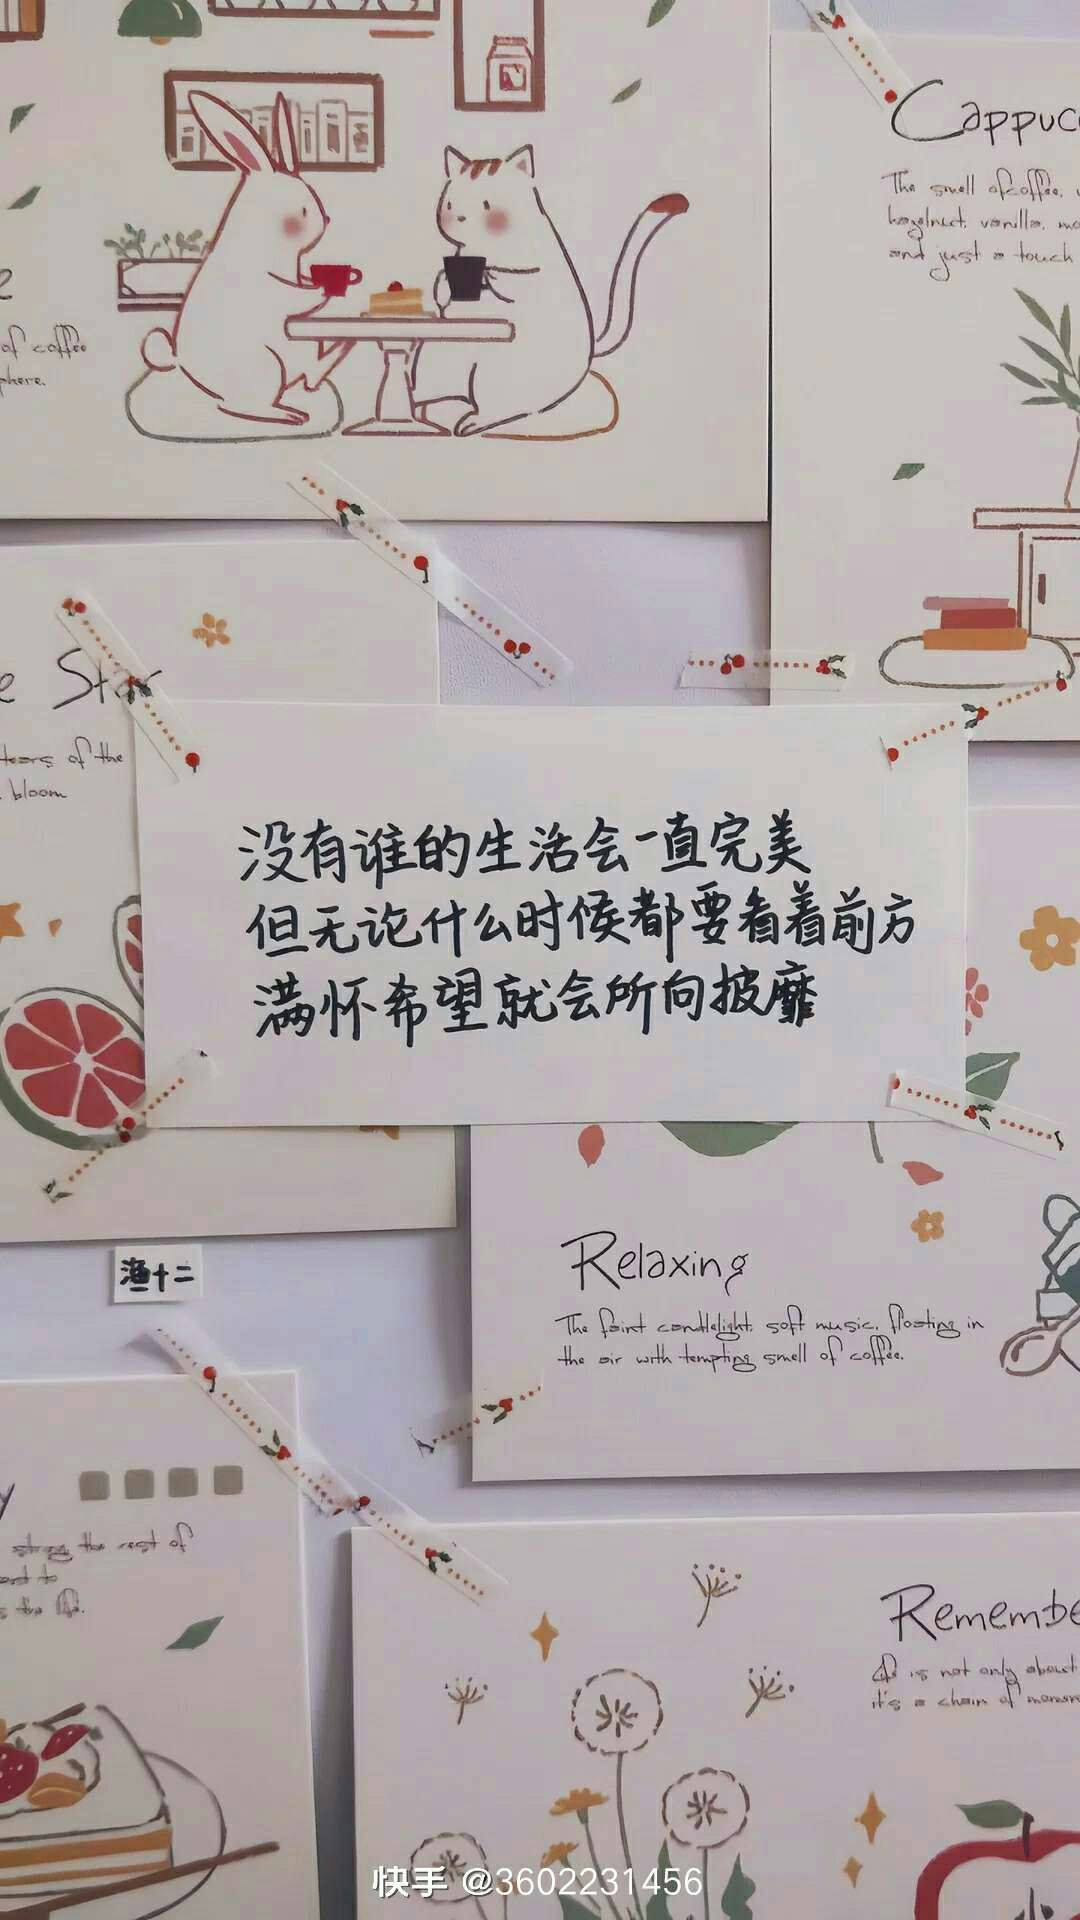 Cappuc
The smell of coffee,
hazelnut, vanilla,
and just a touch
of coffee
phere.
Star
tears of the
bloom
没有谁的生活会一直完美
但无论什么时候都要看着前方
满怀希望就会所向披靡
渔十二
Relaxing
The faint candlelight, soft music, floating in
the air with tempting smell of coffee.
y
the rest of
to
s the life.
Remembe
is not only about
it's a chain of
快手 @3602231456